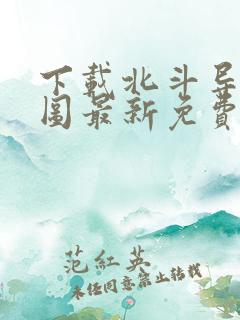 下载北斗导
图最新免费
范紅英
未经同意禁止转载